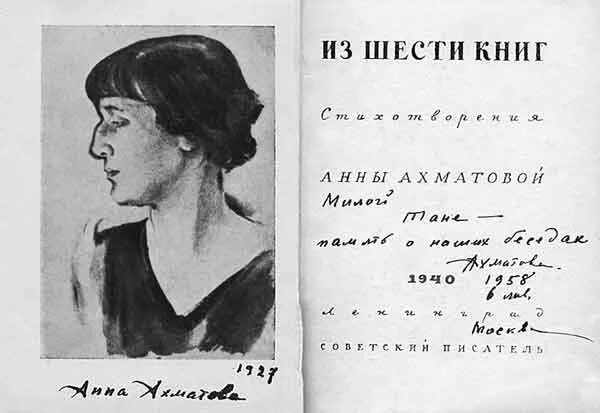 1927
Анна Ахматова
ИЗ ШЕСТИ КНИГ
Стихотворения
АННЫ АХМАТОВОЙ
Милой
Тане —
память о наших беседах
Ахматова.
1940 1958
6 янв.
Ленинград
Москва
СОВЕТСКИЙ ПИСАТЕЛЬ